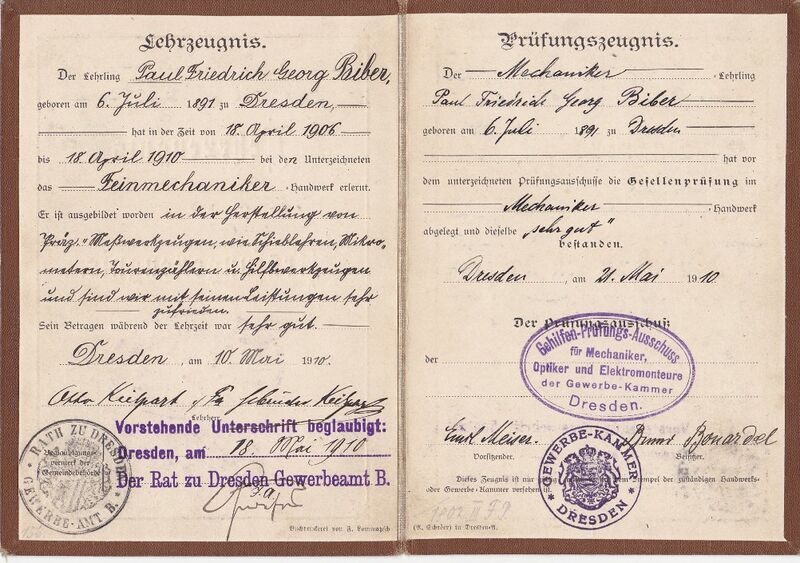 Lehrzeugnis.
Der Lehrling Paul Friedrich Georg Biber,
geboren am 6. Juli 1891 zu Dresden,
hat in der Zeit von 18. April 1906
bis 18. April 1910 bei den Unterzeichneten
das Feinmechaniker-Handwerk erlernt.
Er ist ausgebildet worden in der Herstellung von
Präz.-Meßwerkzeugen, wie Schieblehren, Mikro-
metern, Tourenzählern u. Hilfswerkzeugen
und sind wir mit seinen Leistungen sehr
zufrieden.
Sein Betragen während der Lehrzeit war sehr gut.
Dresden, am 10. Mai 1910.
Otto Keilpart
Lehrherr
Vorstehende Unterschrift beglaubigt:
Dresden, am 18. Mai 1910
Der Rat zu Dresden Gewerbeamt B.
RATH ZU DRESDEN
GEWERBE-AMT B.
Beglaubigungs-
vermerk der
Gemeindebehörde
Buchdruckerei von F. Lommatzsch
Prüfungszeugnis.
Der Mechaniker-Lehrling
Paul Friedrich Georg Biber
geboren am 6. Juli 1891 zu Dresden
hat vor
dem unterzeichneten Prüfungsausschusse die Gesellenprüfung im
Mechaniker-Handwerk
abgelegt und dieselbe "sehr gut"
bestanden.
Dresden, am 21. Mai 1910
Der Prüfungsausschuß
der
Gehilfen-Prüfungs-Ausschuss
für Mechaniker,
Optiker und Elektromonteure
der Gewerbe-Kammer
Dresden.
Emil Meiser. Bonardel
Vorsitzender. Beisitzer.
Dieses Zeugnis ist nur Stempel der zuständigen Handwerks-
oder Gewerbe-Kammer versehen ist
GEWERBE-KAMMER
DRESDEN
in Dresden-A.